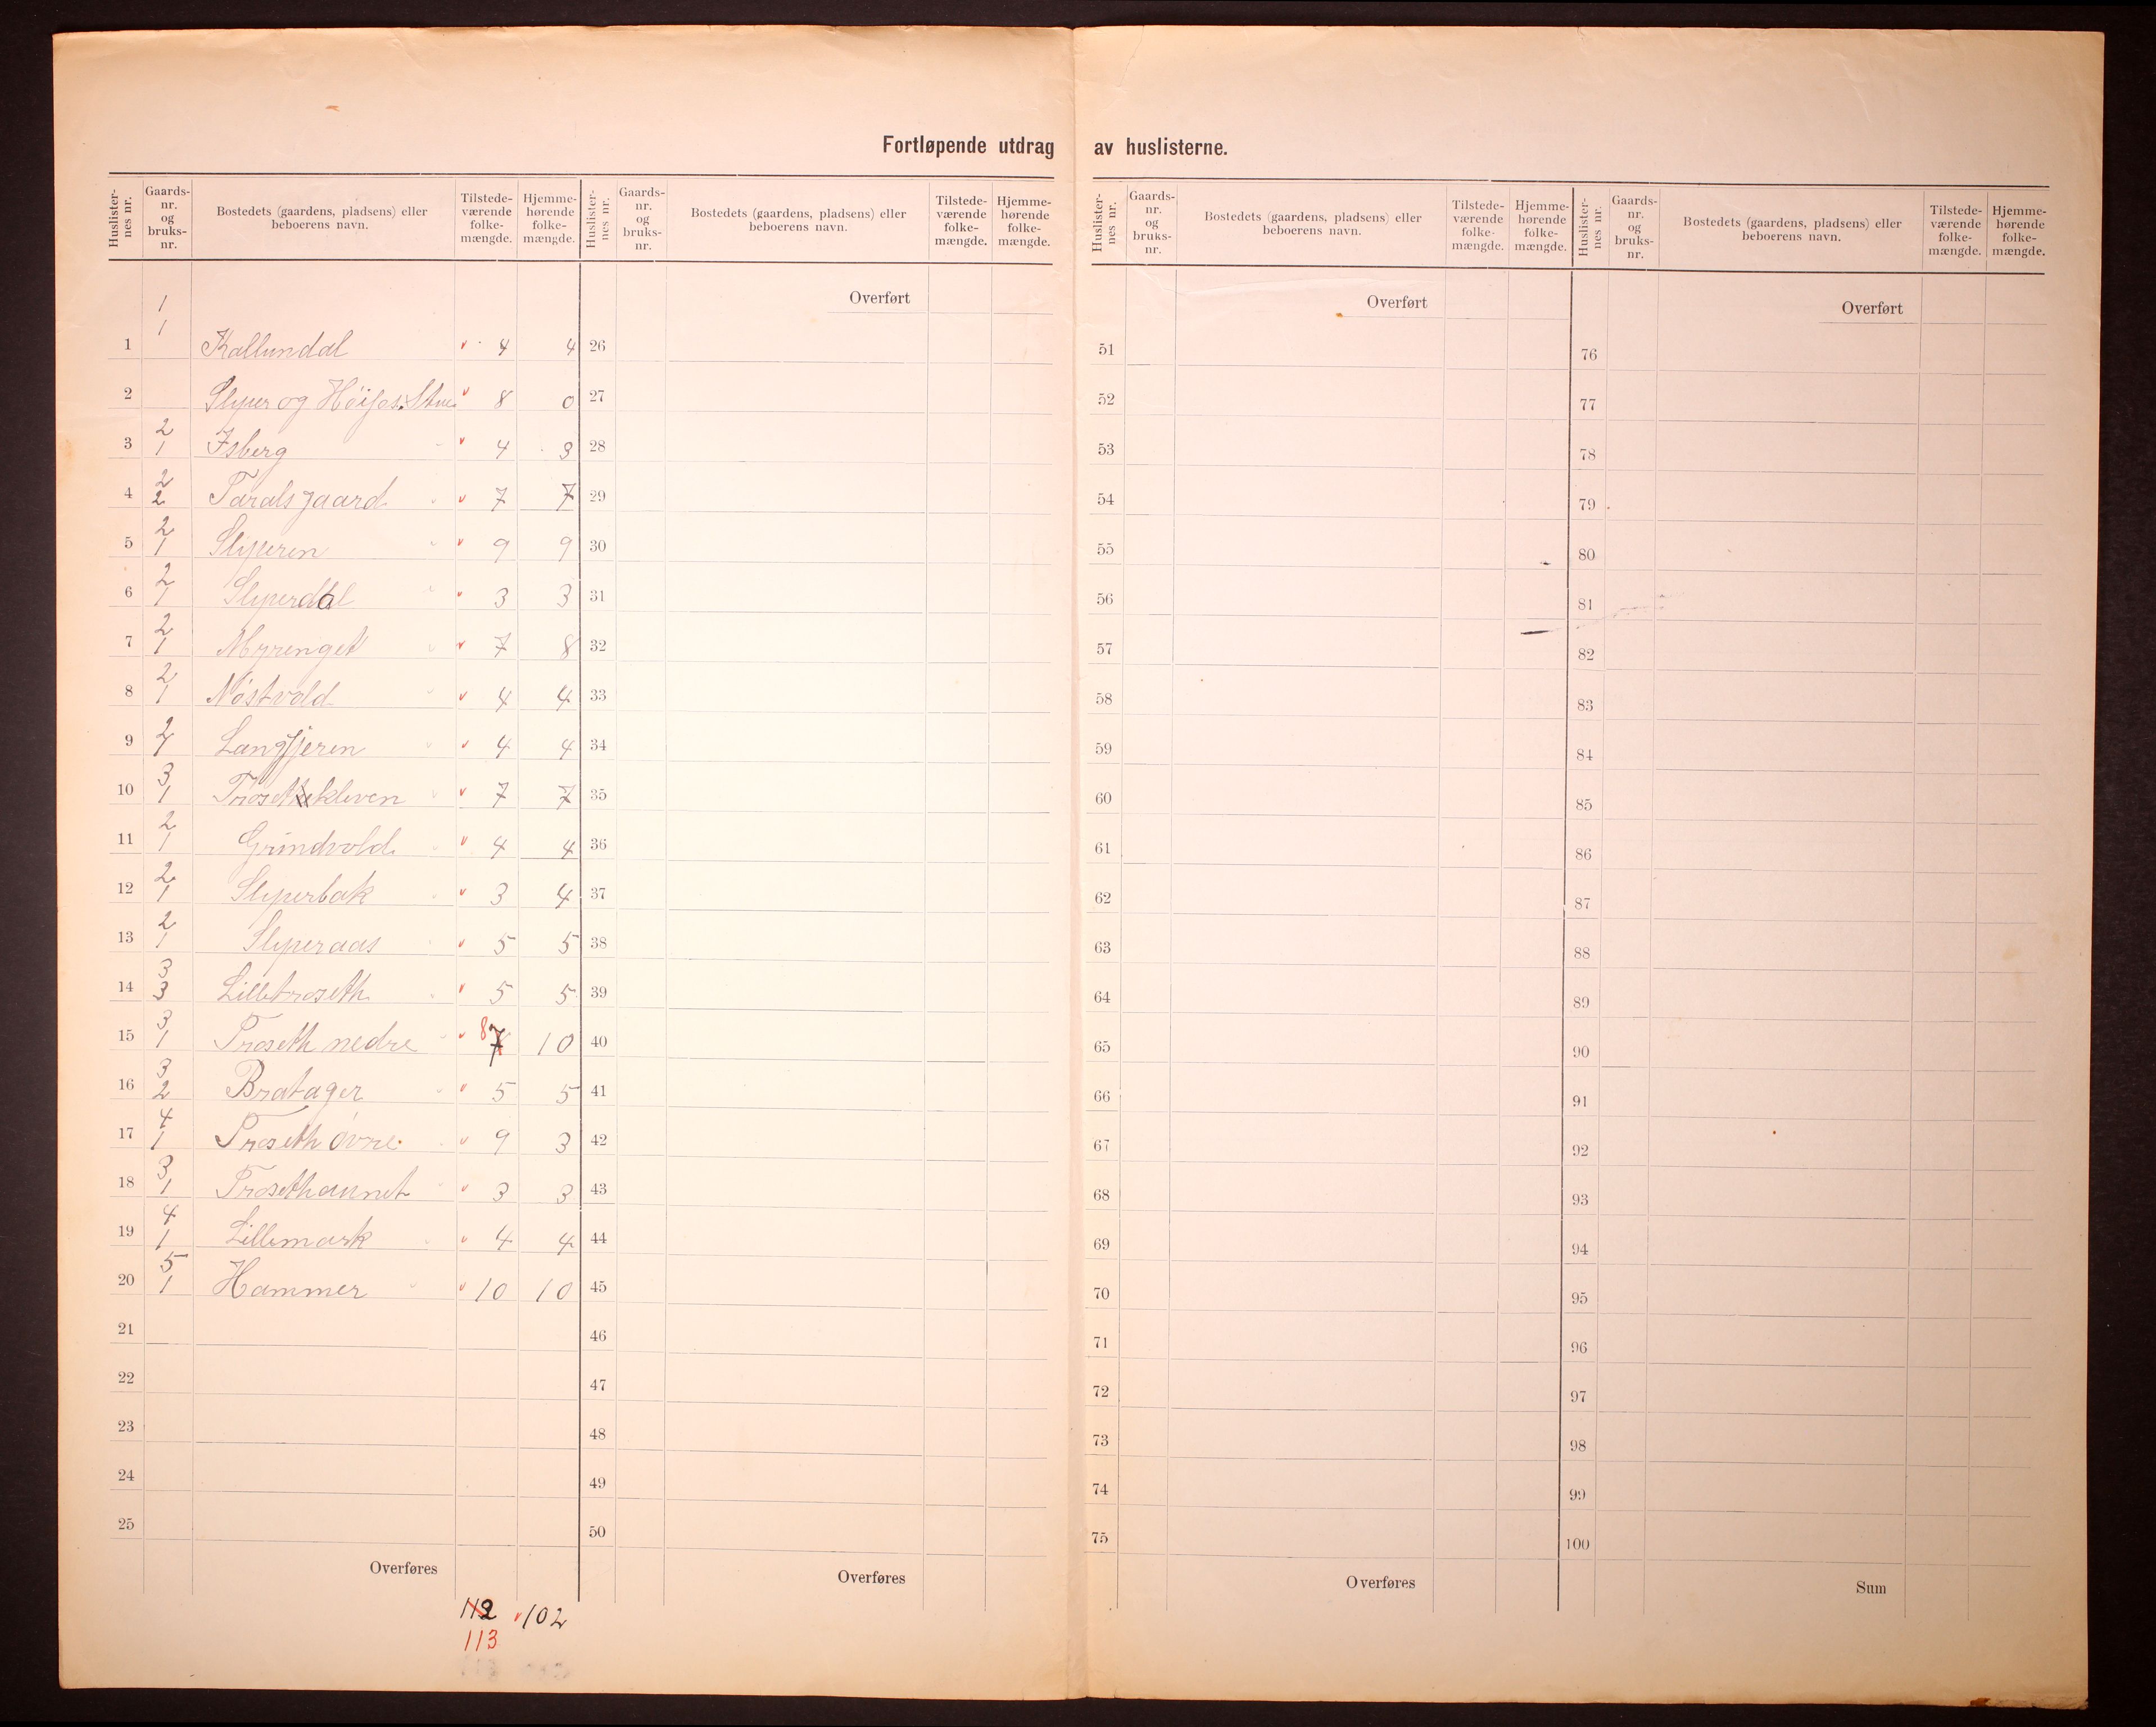 Fortløpende utdrag av huslisterne.
Huslister-nes nr. Gaards-nr. og bruks-nr. Bostedets (gaardens, pladsens) eller beboerens navn. Tilstede-værende folke-mængde. Hjemme-hørende folke-mængde. Huslister-nes nr. Gaards-nr. og bruks-nr. Bostedets (gaardens, pladsens) eller beboerens navn. Tilstede-værende folke-mængde. Hjemme-hørende folke-mængde. Huslister-nes nr. Gaards-nr. og bruks-nr. Bostedets (gaardens, pladsens) eller beboerens navn. Tilstede-værende folke-mængde. Hjemme-hørende folke-mængde. Huslister-nes nr. Gaards-nr. og bruks-nr. Bostedets (gaardens, pladsens) eller beboerens navn. Tilstede-værende folke-mængde. Hjemme-hørende folke-mængde.
Overført Overført Overført
1 1/1 Kallundal 4 4 26 51 76
2 og 8 0 27 52 77
3 2/1 Isberg 4 3 28 53 78
4 2/2 Taralsgaard 7 7 29 54 79
5 2/1 Slyperen 9 9 30 55 80
6 2/1 Slyperdal 3 3 31 56 81
7 2/1 Myrenget 7 8 32 57 82
8 2/1 Nøstvold 4 4 33 58 83
9 2/1 Langfjeren 4 4 34 59 84
10 3/1 Trosethkleven 7 7 35 60 85
11 2/1 Grindvold 4 4 36 61 86
12 2/1 Slyperbak 3 4 37 62 87
13 2/1 Slyperaas 5 5 38 63 88
14 3/3 Lilletroseth 5 5 39 64 89
15 3/1 Troseth nedre 8 7 10 40 65 90
16 3/2 Bratager 5 5 41 66 91
17 4/1 Troseth øvre 9 3 42 67 92
18 3/1 Trosethaunet 3 3 43 68 93
19 4/1 Lillemark 4 4 44 69 94
20 5/1 Hammer 10 10 45 70 95
21 46 71 96
22 47 72 97
23 48 73 98
24 49 74 99
25 50 75 100
Overføres Overføres Overføres Sum
112 102
113